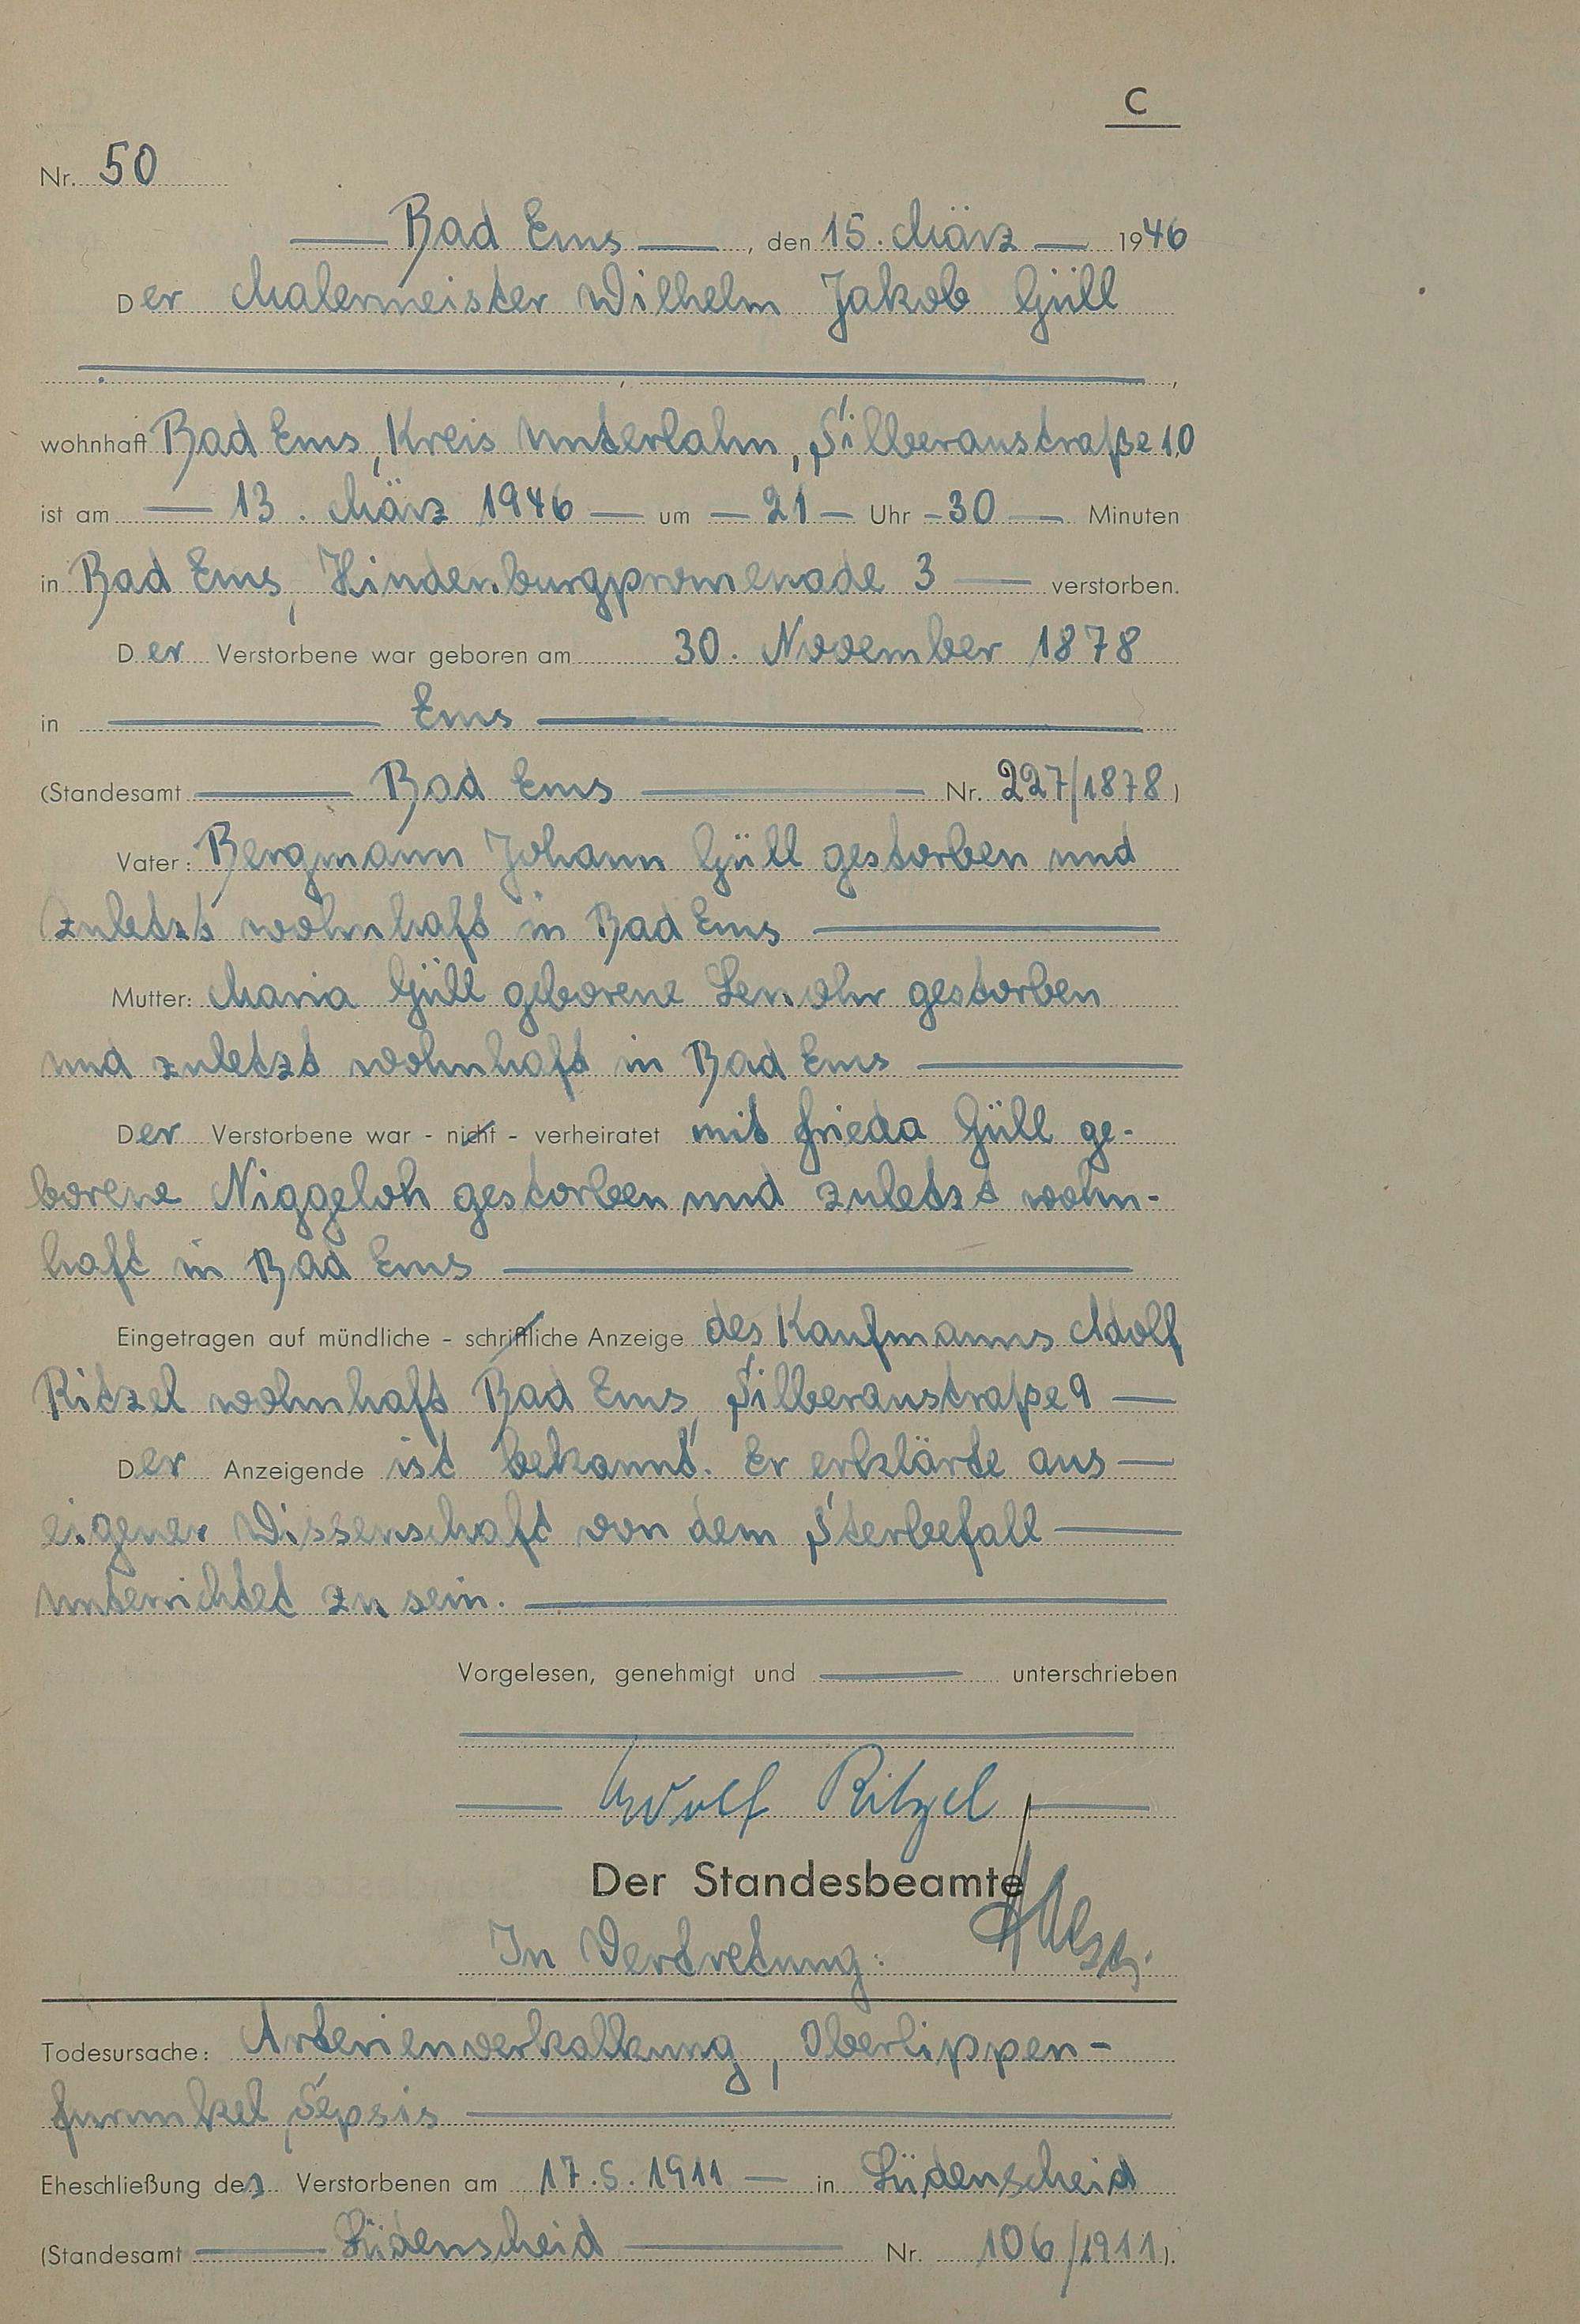 C
Nr. 50
Bad Ems, den 15. März 1946
Der Malermeister Wilhelm Jakob Güll
wohnhaft Bad Ems, Kreis Unterlahn, Silberaustraße 10
ist am 13. März 1946 um 21 Uhr 30 Minuten
in Bad Ems, Hindenburgpromenade 3 verstorben.
Der Verstorbene war geboren am 30. November 1878
in Ems
(Standesamt Bad Ems Nr. 227/1878)
Vater: Bergmann Johann Güll gestorben und
zuletzt wohnhaft in Bad Ems
Mutter: Maria Güll geborene Lenohr gestorben
und zuletzt wohnhaft in Bad Ems
Der Verstorbene war - nicht - verheiratet mit Frieda Güll ge-
borene Niggeloh gestorben und zuletzt wohn-
haft in Bad Ems
Eingetragen auf mündliche - schriftliche Anzeige des Kaufmanns Adolf
Ritzel wohnhaft Bad Ems, Silberaustraße 9
Der Anzeigende ist bekannt. Er erklärte aus
eigener Wissenschaft von dem Sterbefall
unterrichtet zu sein.
Vorgelesen, genehmigt und unterschrieben
Adolf Ritzel
Der Standesbeamte
In Vertretung:
Todesursache: Arterienverkalkung, Oberlippen-
furunkel, Sepsis
Eheschließung des Verstorbenen am 17.5.1911 in Lüdenscheid
(Standesamt Lüdenscheid Nr. 106/1911).